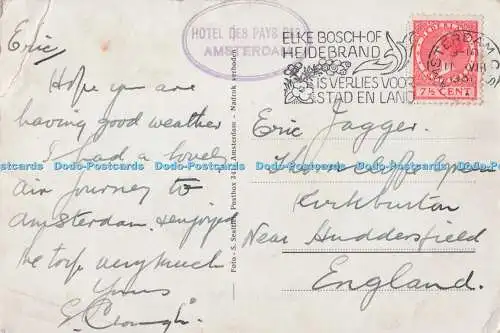 Eric
Hope you are
having good weather
I had a lovely
air journey to
Amsterdam. & enjoyed
the trip very much
Yours
HOTEL DES PAYS BAS
AMSTERDAM
ELKE BOSCH-OF
HEIDEBRAND
IS VERLIES VOOR
STAD EN LAND
AMSTERDAM
NEDERLAND
7½ CENT
Foto - S. Postbox 3432 Amsterdam - Nadruk verboden
Eric Jagger.
Kirkburton
Near Huddersfield
England.
Dodo-Postcards Dodo-Postcards Dodo-Postcards Dodo-Postcards